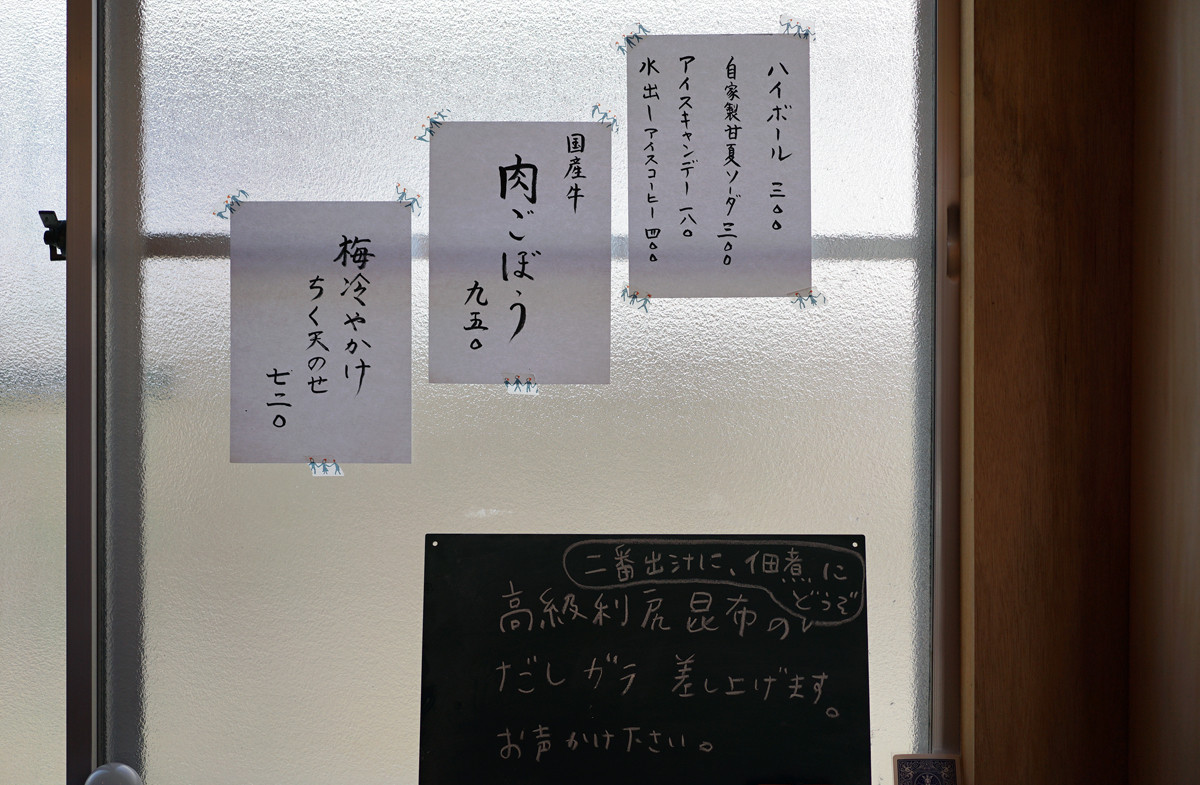 ハイボール 三〇〇
自家製甘夏ソーダ 三〇〇
アイスキャンデー 一八〇
水出しアイスコーヒー 四〇〇
国産牛
肉ごぼう
九五〇
梅冷やかけ
ちく天のせ
七二〇
二番出汁に、佃煮に
どうぞ
高級利尻昆布の
だしガラ 差し上げます。
お声かけ下さい。